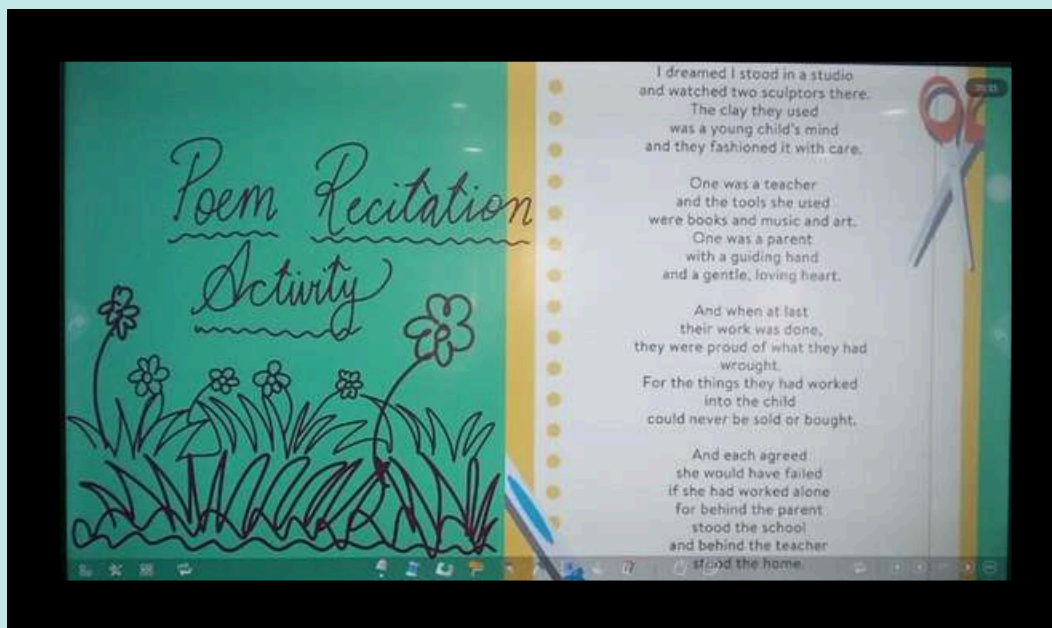 Poem Recitation
Activity
I dreamed I stood in a studio
and watched two sculptors there.
The clay they used
was a young child's mind
and they fashioned it with care.
One was a teacher
and the tools she used
were books and music and art.
One was a parent
with a guiding hand
and a gentle, loving heart.
And when at last
their work was done,
they were proud of what they had
wrought.
For the things they had worked
into the child
could never be sold or bought.
And each agreed
she would have failed
if she had worked alone
for behind the parent
stood the school
and behind the teacher
stood the home.